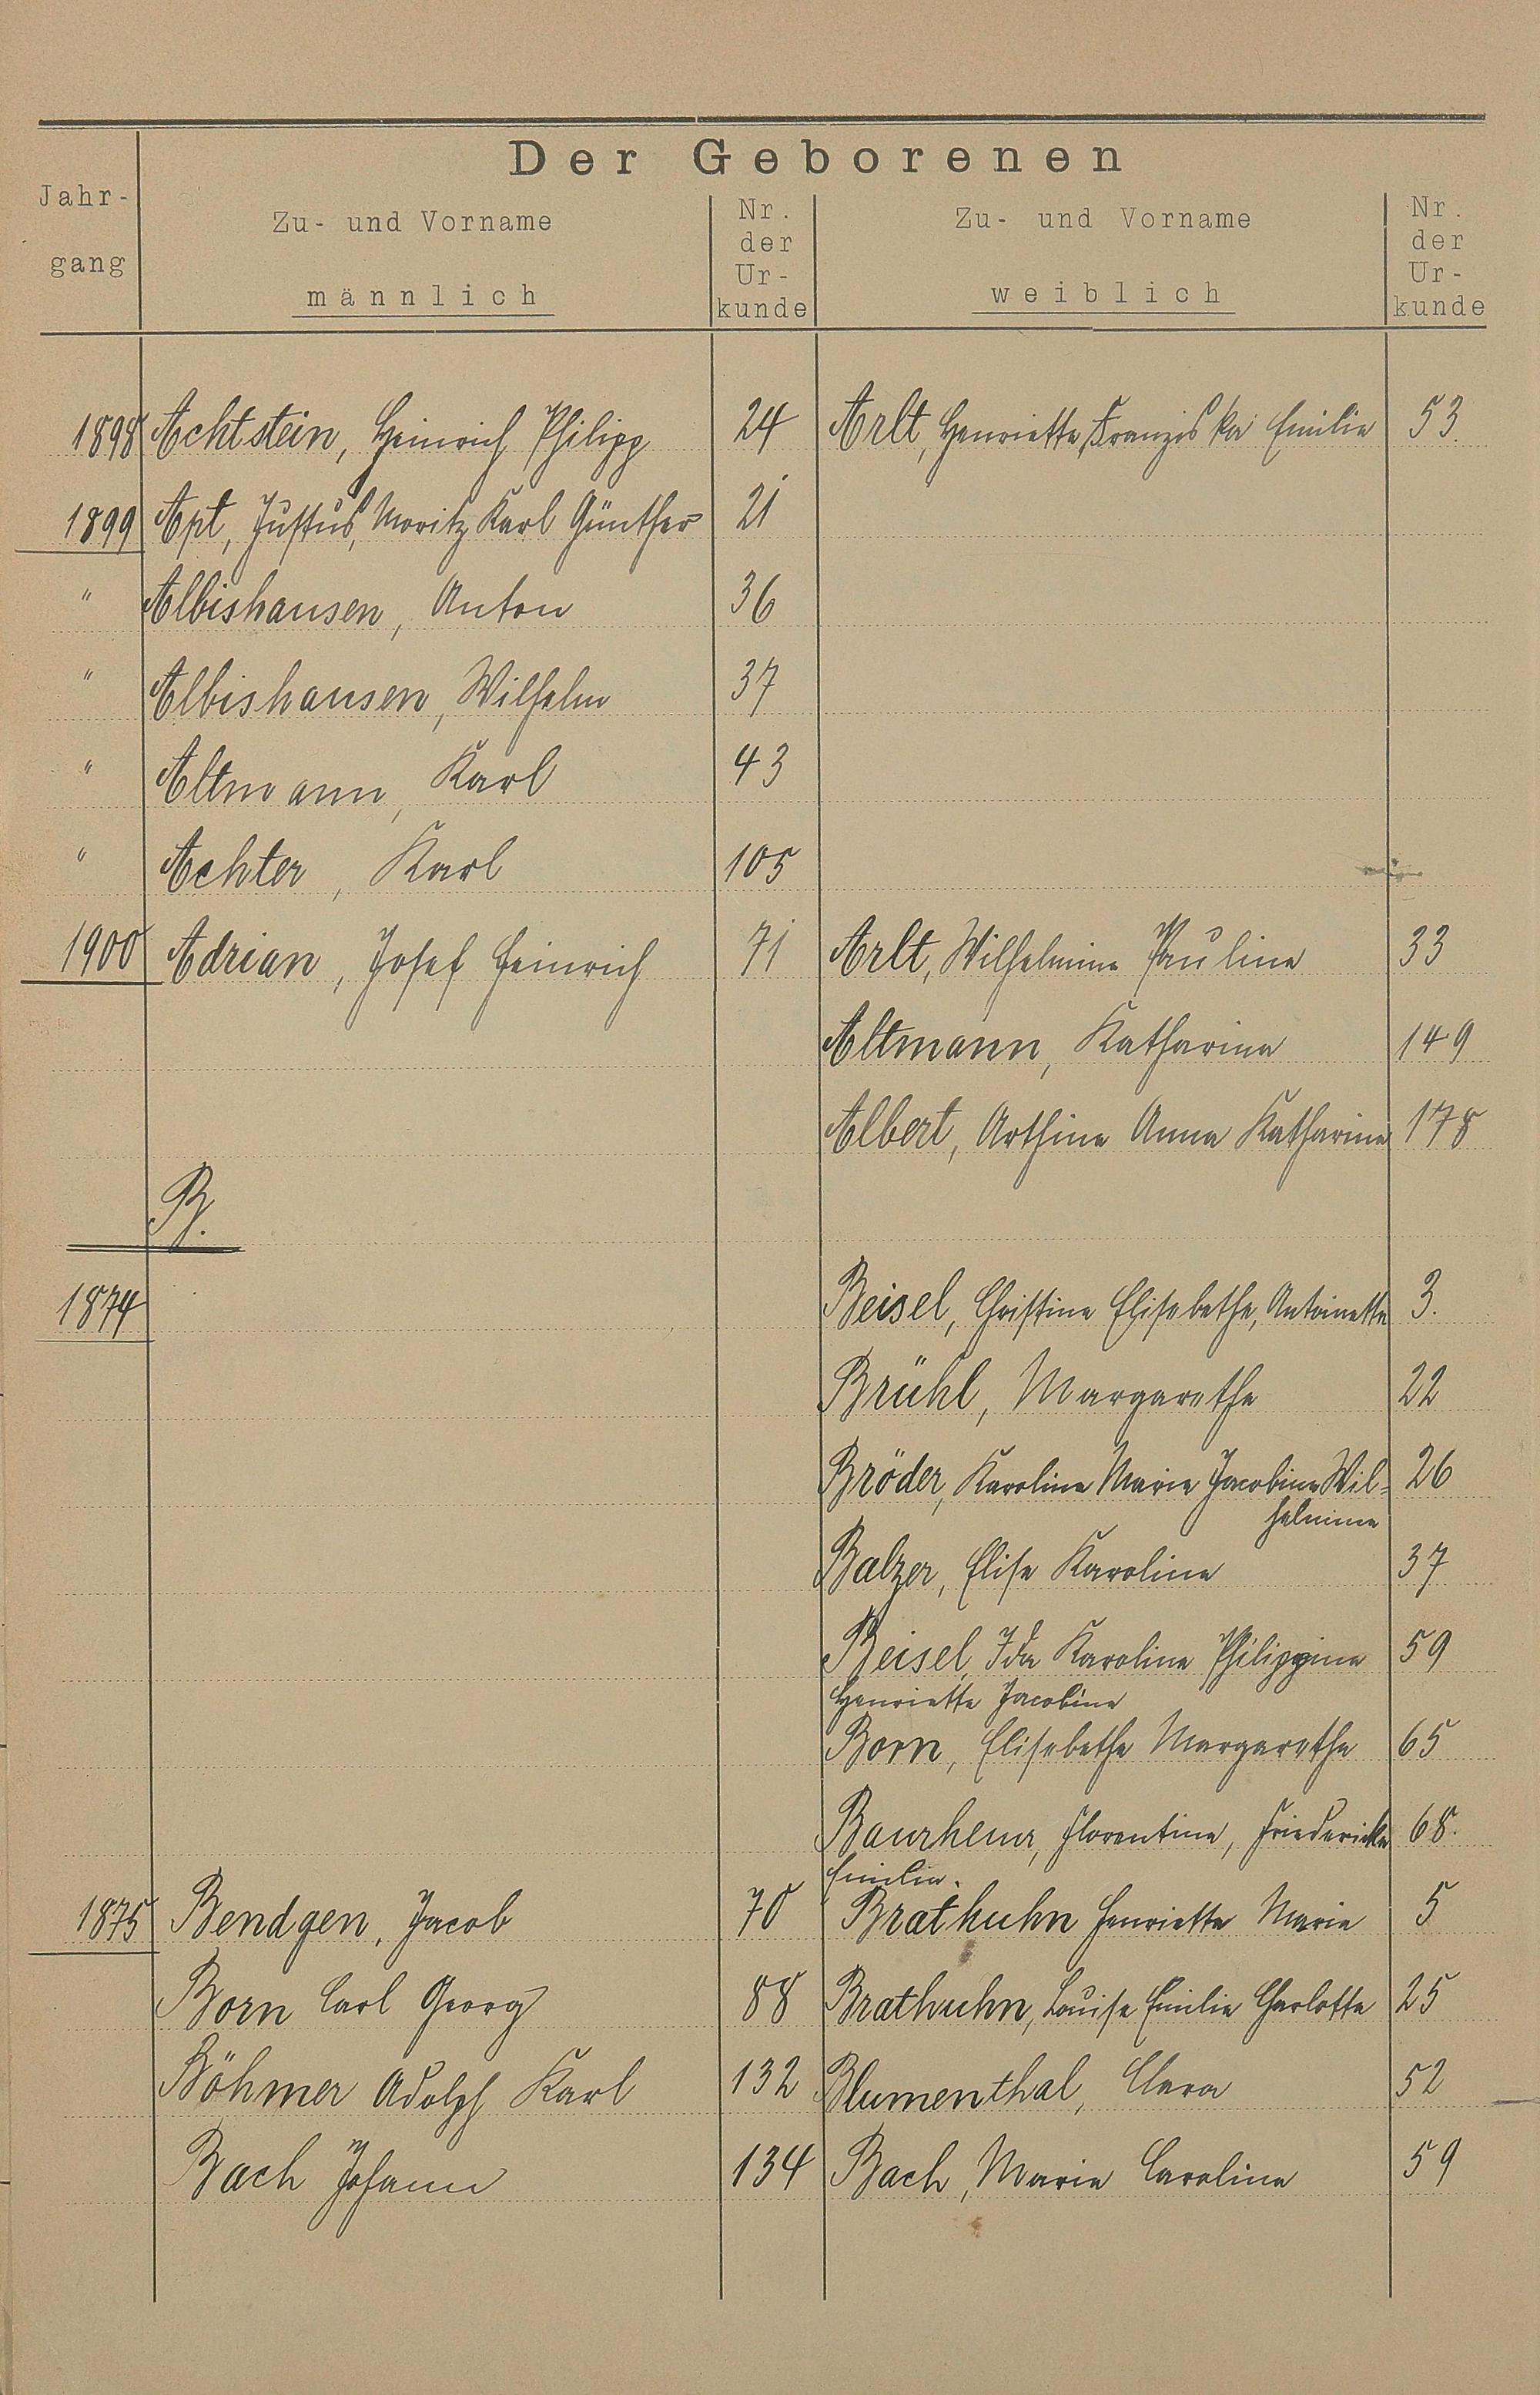 Der Geborenen
Jahr-
gang
Zu- und Vorname
männlich
Nr.
der
Ur-
kunde
Zu- und Vorname
weiblich
Nr.
der
Ur-
kunde
1898 Achtstein, Heinrich Philipp 24 Arlt, Henriette, Franziska Emilie 53
1899 Apt, Justus, Moritz Karl Günther 21
" Albishausen, Anton 36
" Albishausen, Wilhelm 37
" Altmann, Karl 43
" Achter, Karl 105
1900 Adrian, Josef Heinrich 71 Arlt, Wilhelmine Pauline 33
Altmann, Katharina 149
Albert, Anna Katharina 178
B.
1874 Beisel, Christine Elisabethe, Antoinette 3.
Brühl, Margarethe 22
Bröder, Karoline Marie Jacobine Wil= 26
helmine
Balzer, Elise Karoline 37
Beisel, Ida Karoline Philippine 59
Henriette Jacobine
Born, Elisabethe Margarethe 65
Florentine, Friedericke 68.
Emilie.
1875 Bendgen, Jacob 70 Brathuhn Henriette Marie 5
Born Carl Georg 88 Brathuhn, Louise Emilie Charlotte 25
Böhmer Adolph Karl 132 Blumenthal, Clara 52
Bach Johann 134 Bach, Marie Caroline 59